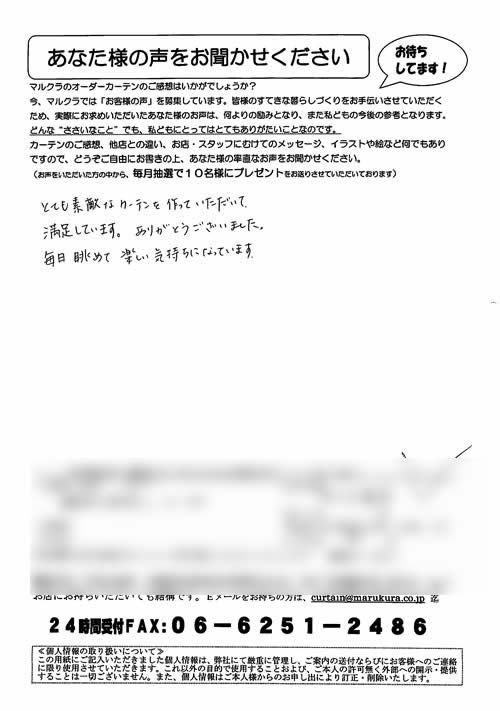 あなた様の声をお聞かせください
お待ち
してます!
マルクラのオーダーカーテンのご感想はいかがでしょうか?
今、マルクラでは「お客様の声」を募集しています。皆様のすてきな暮らしづくりをお手伝いさせていただく
ため、実際にお求めいただいたあなた様のお声は、何よりの励みとなり、また私どもの今後の参考となります。
どんな“ささいなこと”でも、私どもにとってはとてもありがたいことなのです。
カーテンのご感想、他店との違い、お店・スタッフにむけてのメッセージ、イラストや絵など何でもあり
ですので、どうぞご自由にお書きの上、あなた様の率直なお声をお聞かせください。
(お声をいただいた方の中から、毎月抽選で10名様にプレゼントをお送りさせていただいております)
とても素敵なカーテンを作っていただいて
満足しています。ありがとうございました。
毎日眺めて楽しい気持ちになっています
お店にお持ちいただいても結構です。Eメールをお持ちの方は、curtain@marukura.co.jp 迄
24時間受付FAX:06-6251-2486
≪個人情報の取り扱いについて≫
この用紙にご記入いただきました個人情報は、弊社にて厳重に管理し、ご案内の送付ならびにお客様へのご連絡
に限り使用させていただきます。これ以外の目的で使用することおよび、ご本人の許可無く外部への開示・提供
することは一切ございません。また、個人情報はご本人様からのお申し出により訂正・削除いたします。